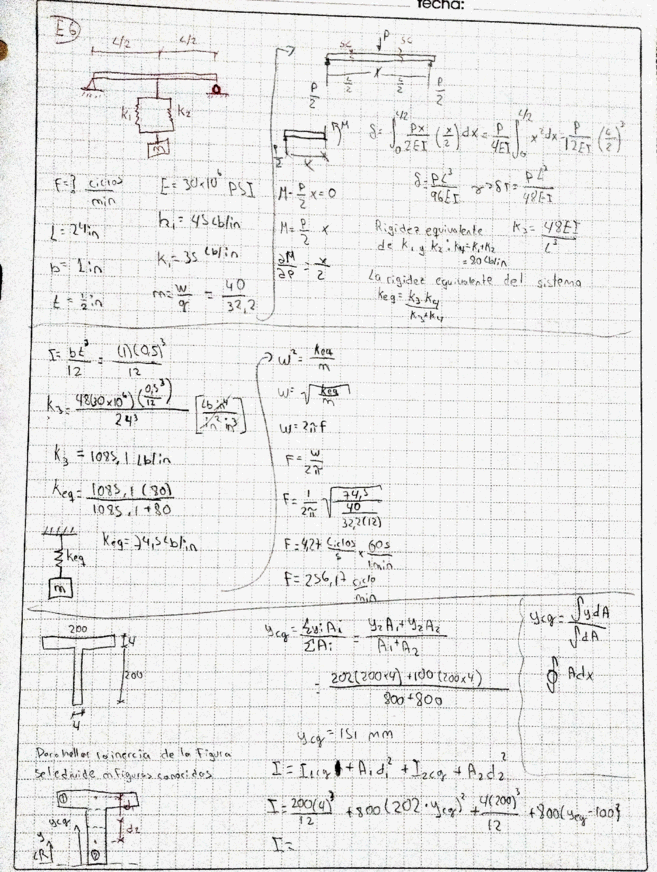 fecha:
E6
L/2 L/2
k₁ k₂
m
F=? ciclos/min
E=30×10⁶ PSI
L=24in
k₂=45Lb/in
b=1in
k₁=35 Lb/in
t=1/2 in
m=w/g=40/32,2
P
P/2 L/2 x L/2 P/2
M
M-P/2 x=0
M=P/2 x
∂M/∂P=x/2
δ=∫₀^(L/2) Px/2EI (x/2)dx=P/4EI ∫₀^(L/2) x²dx=P/12EI (L/2)³
δ=PL³/96EI δT=PL³/48EI
Rigidez equivalente k₃=48EI/L³
de k₁ y k₂: k₄=k₁+k₂
=80Lb/in
La rigidez equivalente del sistema
keq=k₃·k₄/k₃+k₄
I=bt³/12=(1)(0,5)³/12
k₃=48(30×10⁶)(0,5³/12)/24³ [Lb in⁴/in² in³]
k₃=1085,1 Lb/in
keq=1085,1(80)/1085,1+80
keq=74,5Lb/in
keq
m
ω²=keq/m
ω=√keq/m
ω=2πf
F=ω/2π
F=1/2π √74,5/40/32,2(12)
F=4,27 ciclos/s × 60s/1min
F=256,17 ciclo/min
200
4
200
4
ycg=ΣyiAi/ΣAi=y₂A₁+y₂A₂/A₁+A₂
=202(200×4)+100(200×4)/800+800
ycg=151 mm
ycg=∫ydA/∫dA
∮ Adx
Para hallar la inercia de la figura
se le divide en figuras conocidas
I=I₁cg+A₁d₁²+I₂cg+A₂d₂²
I=200(4)³/12+800(202-ycg)²+4(200)³/12+800(ycg-100)²
I=
1
d1
ycg
d2
y
LR
2